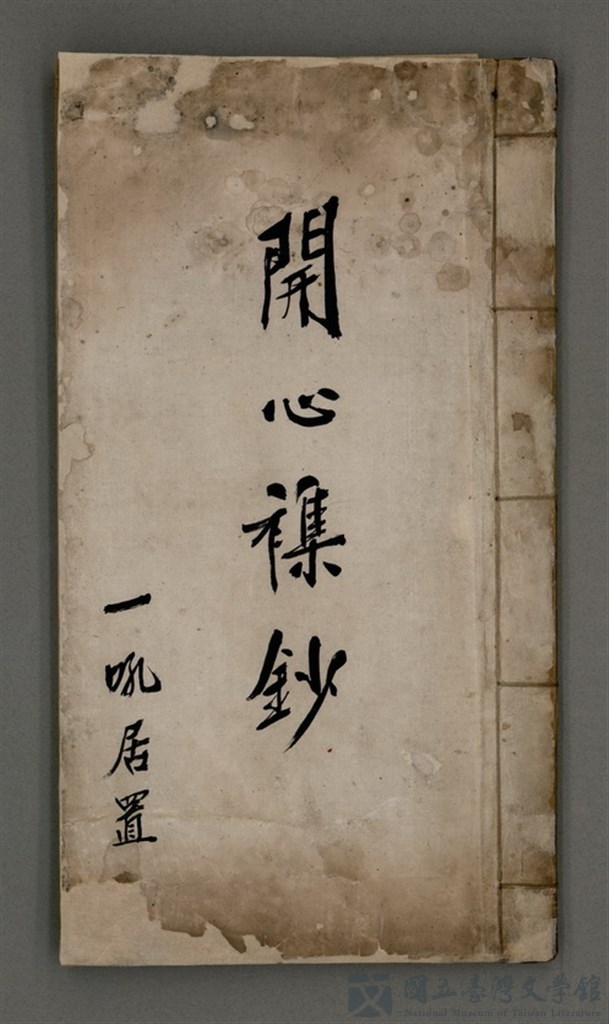 開心襍鈔
一吼居置
國立臺灣文學館
National Museum of Taiwan Literature